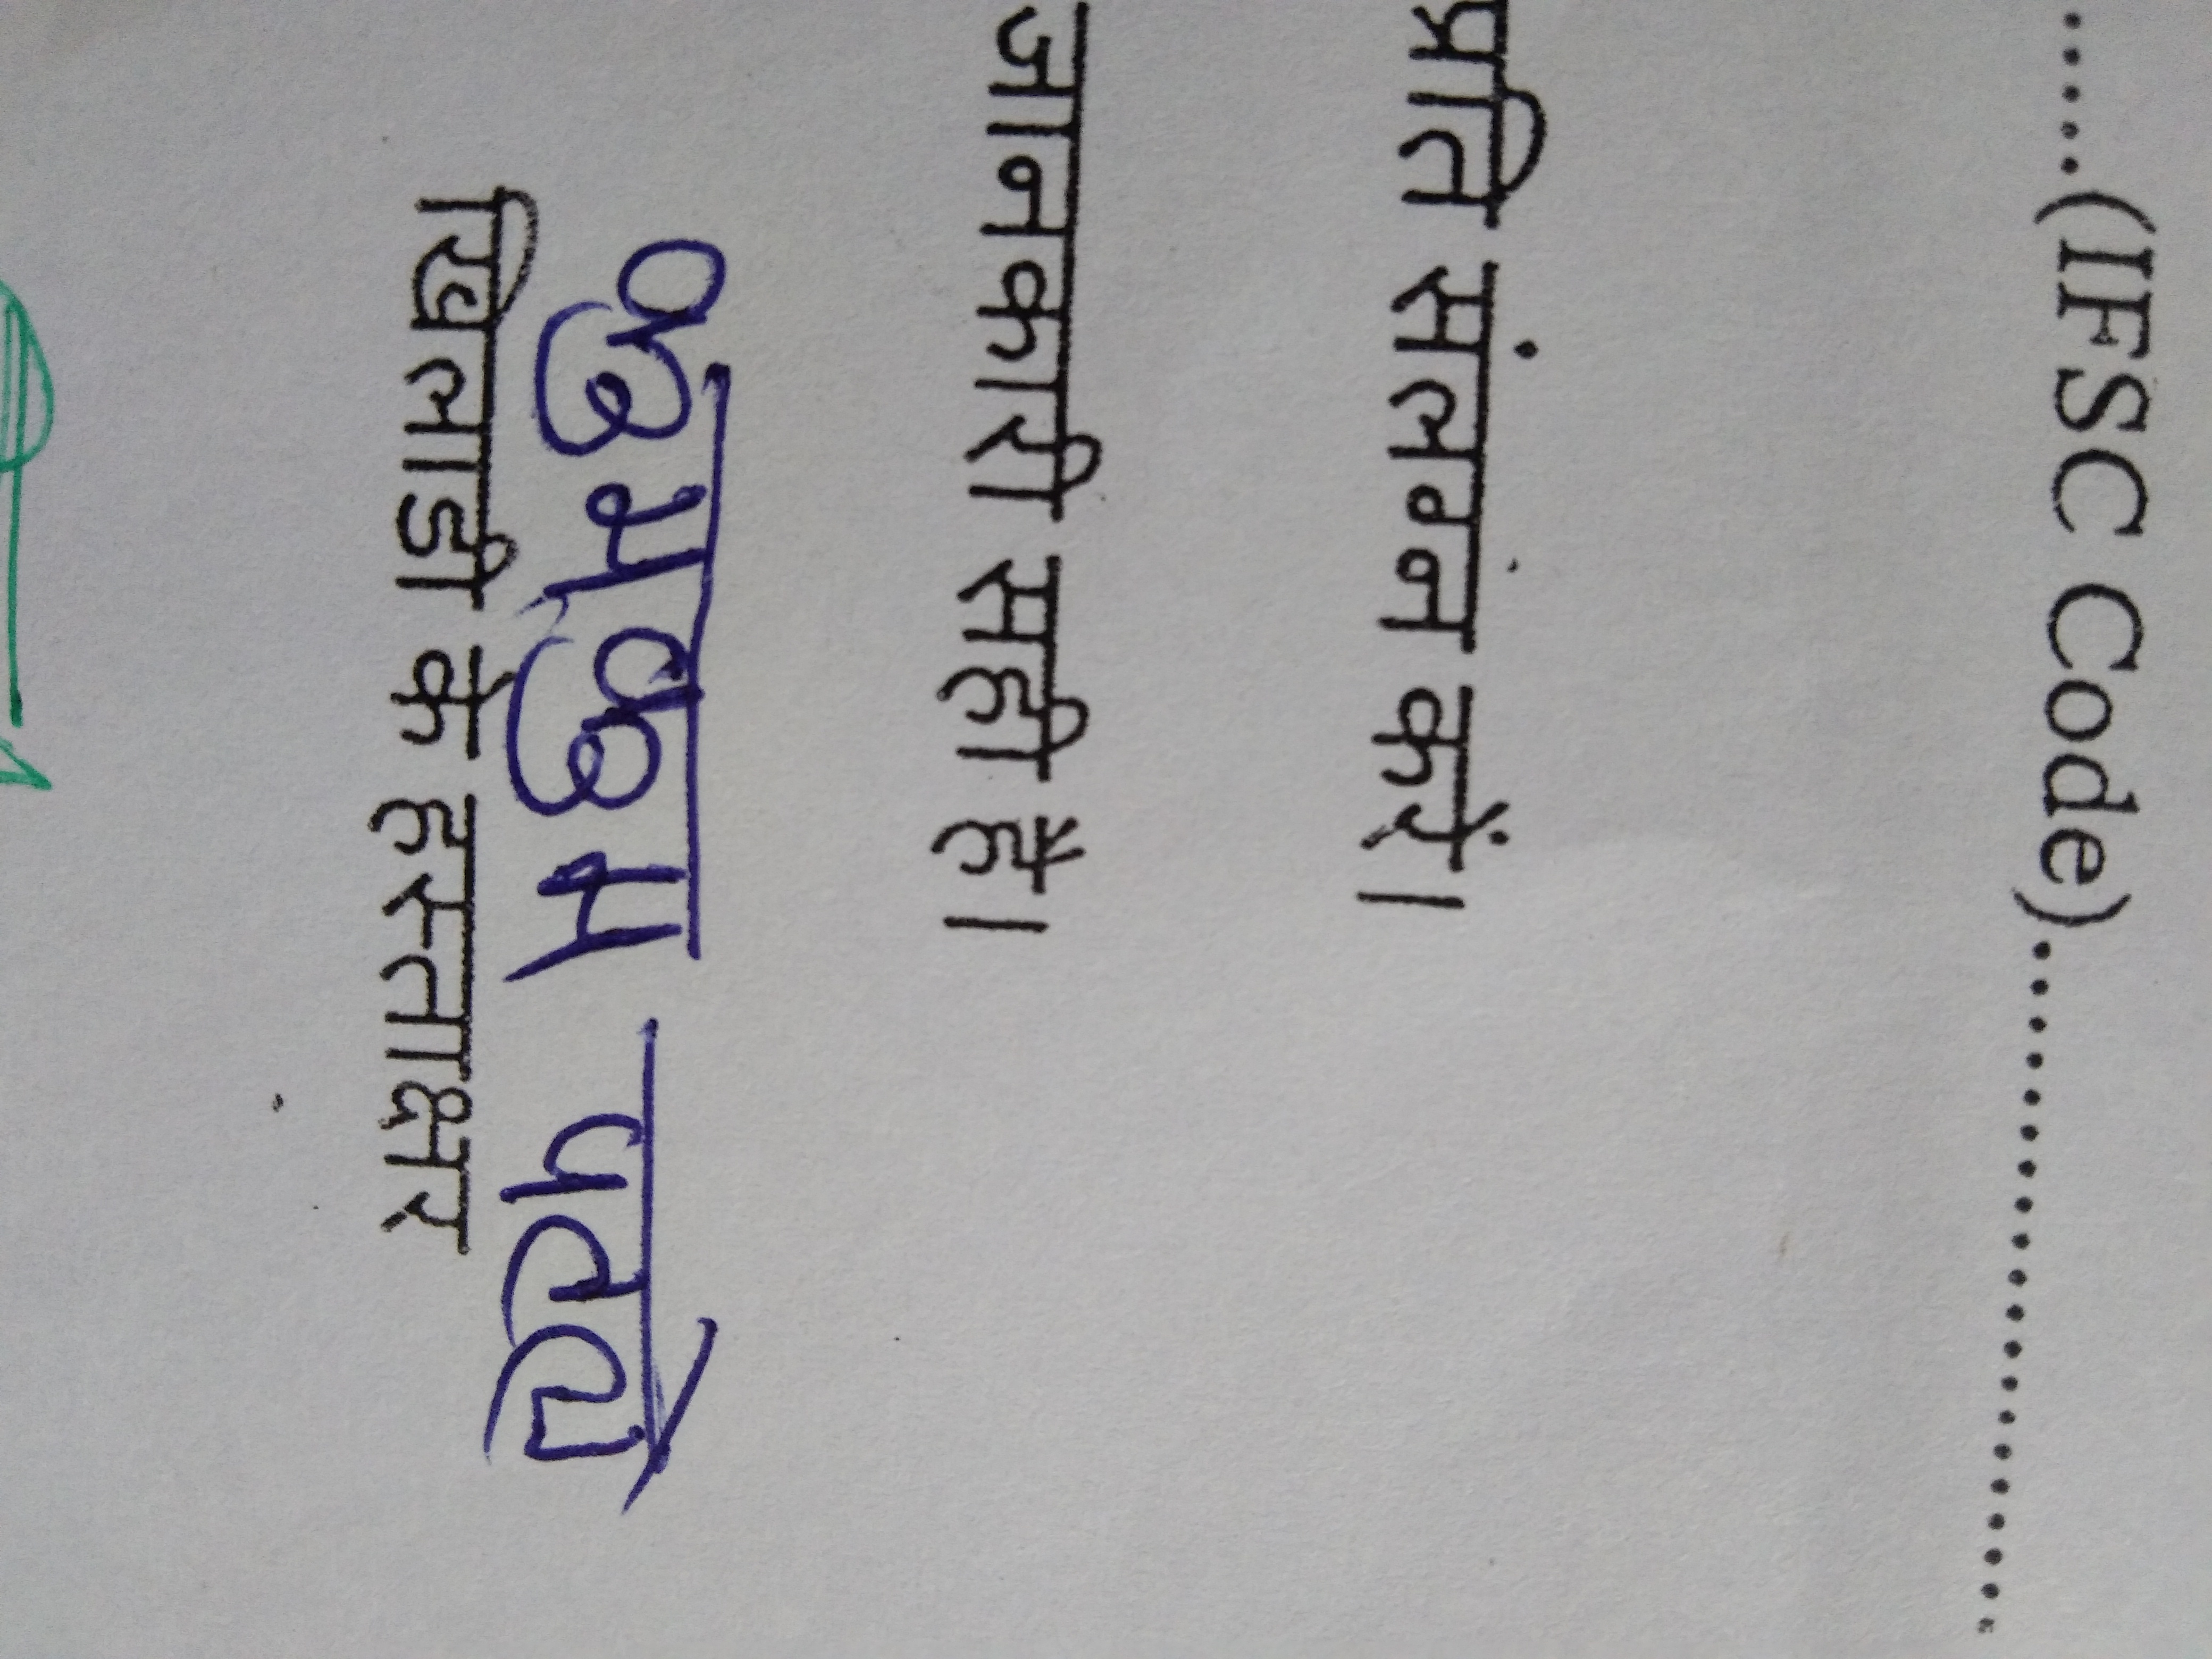 ......(IFSC Code)....................
प्रति संलग्न करें।
जानकारी सही है।
कुमकुम
खिलाडी के हस्ताक्षर